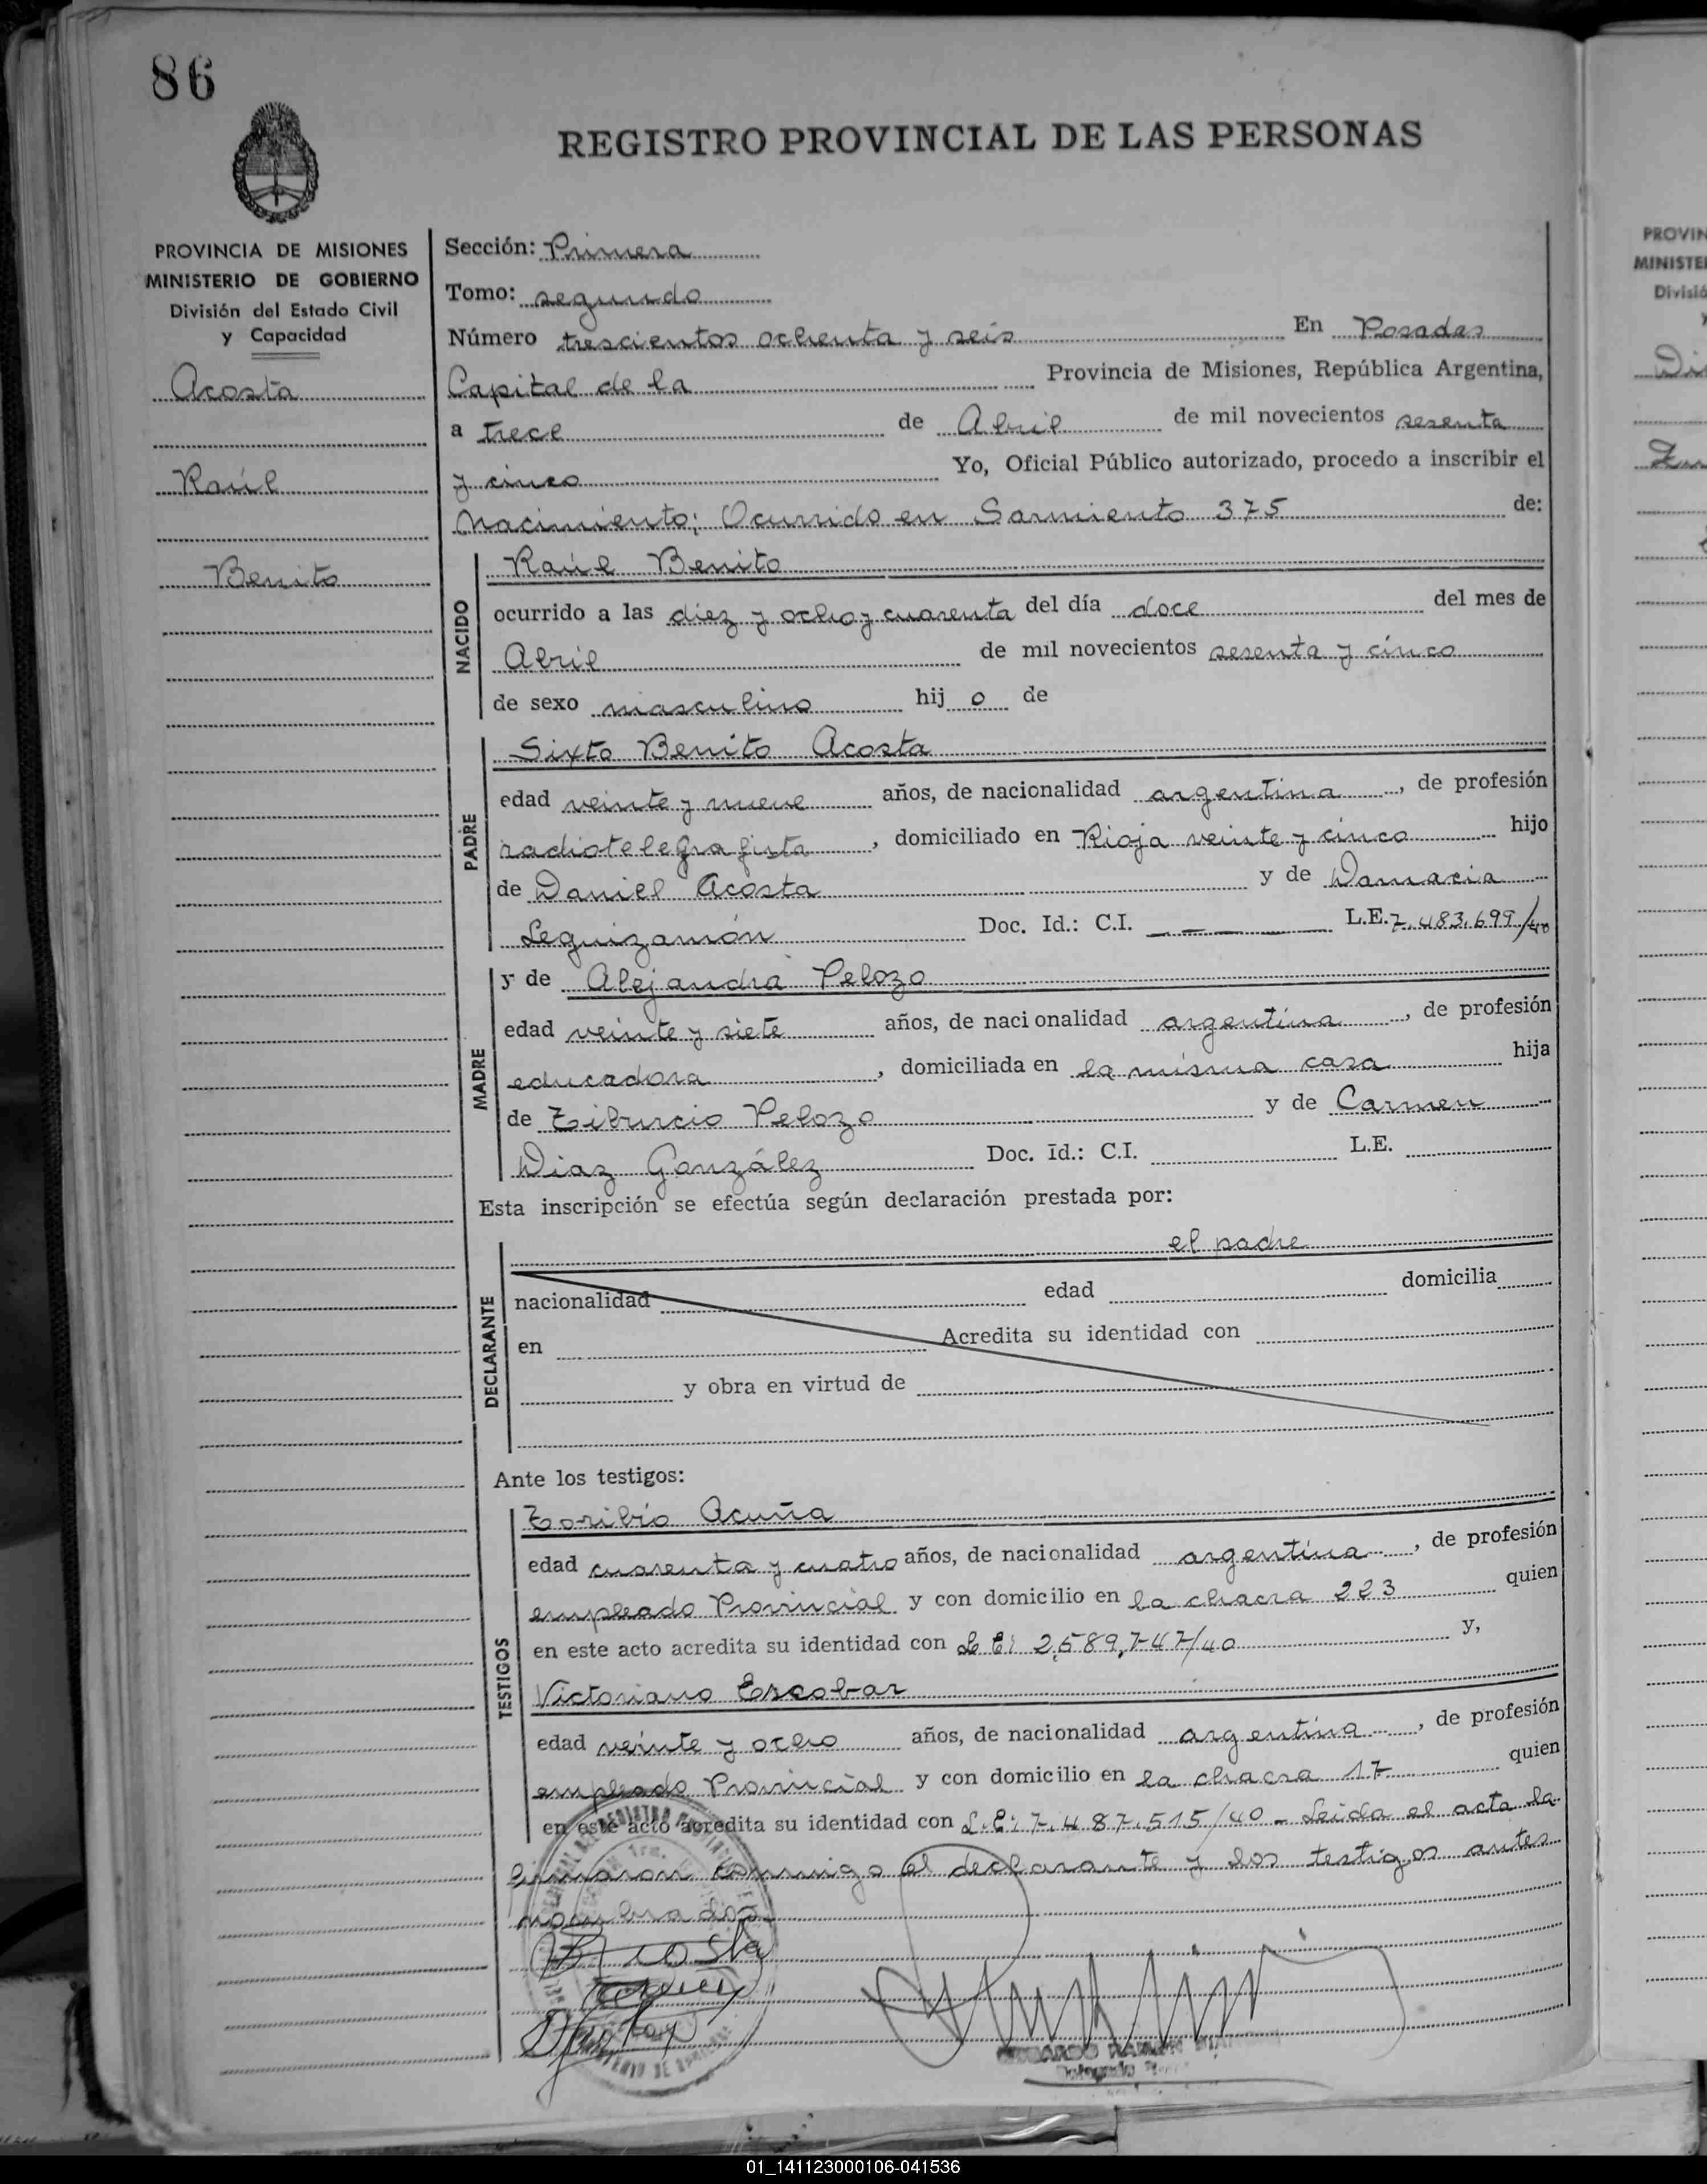 86
REGISTRO PROVINCIAL DE LAS PERSONAS
PROVINCIA DE MISIONES
MINISTERIO DE GOBIERNO
División del Estado Civil
y Capacidad
Acosta
Raúl
Benito
Sección: Primera
Tomo: segundo
Número trescientos ochenta y seis En Posadas
Capital de la Provincia de Misiones, República Argentina,
a trece de Abril de mil novecientos sesenta
y cinco Yo, Oficial Público autorizado, procedo a inscribir el
Nacimiento; Ocurrido en Sarmiento 375 de:
NACIDO
Raúl Benito
ocurrido a las diez y ocho y cuarenta del día doce del mes de
Abril de mil novecientos sesenta y cinco
de sexo masculino hij o de
PADRE
Sixto Benito Acosta
edad veinte y nueve años, de nacionalidad argentina, de profesión
radiotelegrafista, domiciliado en Rioja veinte y cinco hijo
de Daniel Acosta y de Damacia
Leguizamón Doc. Id.: C.I. — — — L.E. 7.483.699/40
MADRE
y de Alejandra Pelozo
edad veinte y siete años, de nacionalidad argentina, de profesión
educadora, domiciliada en la misma casa hija
de Tiburcio Pelozo y de Carmen
Diaz González Doc. Id.: C.I. L.E.
Esta inscripción se efectúa según declaración prestada por:
DECLARANTE
el padre
nacionalidad edad domicilia
en Acredita su identidad con
y obra en virtud de
Ante los testigos:
TESTIGOS
Toribio Acuña
edad cuarenta y cuatro años, de nacionalidad argentina, de profesión
empleado Provincial y con domicilio en la chacra 223 quien
en este acto acredita su identidad con L.E: 2,589,747/40 y,
Victoriano Escobar
edad veinte y ocho años, de nacionalidad argentina, de profesión
empleado Provincial y con domicilio en la chacra 17 quien
en este acto acredita su identidad con L.E: 7.487.515/40 - Leida el acta la
firmaron conmigo el declarante y los testigos antes
nombrados
PROVIN
MINISTE
Divisió
01_141123000106-041536